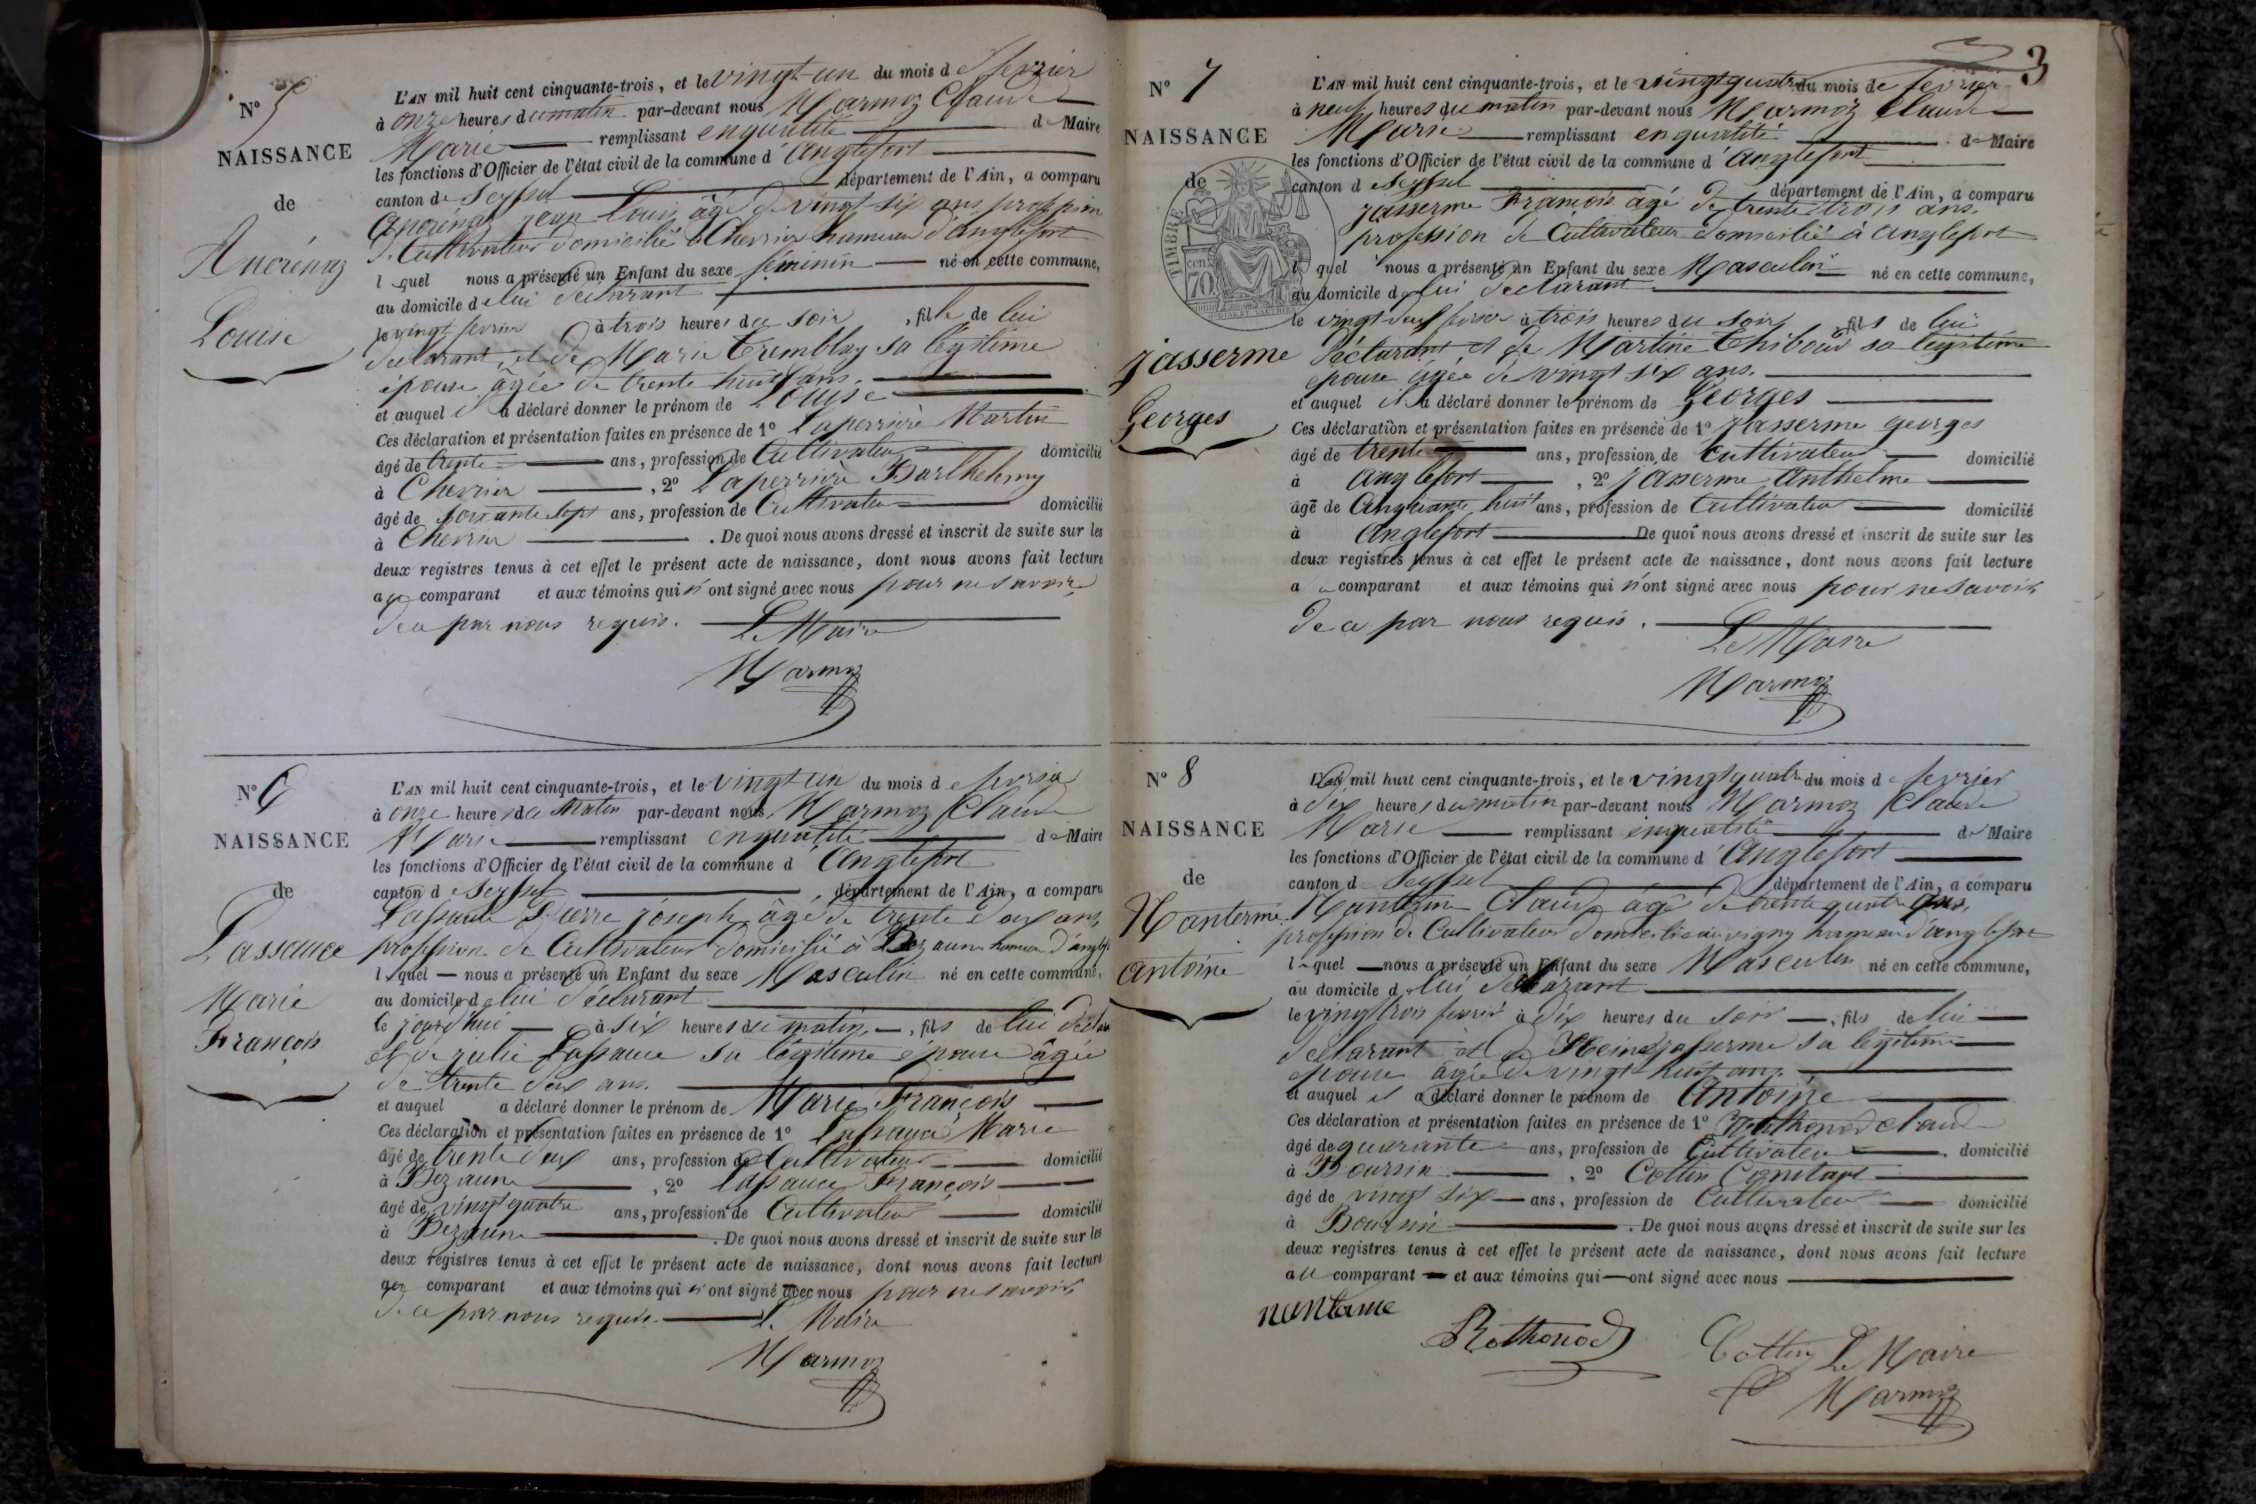 N° 5
NAISSANCE
de
Ancrénaz
Louise
L'AN mil huit cent cinquante-trois, et le vingt-un du mois de fevrier
à onze heures du matin par-devant nous Marmoz Claude
Marie remplissant en qualité de Maire
les fonctions d'Officier de l'état civil de la commune d'Anglefort
canton de Seyssel département de l'Ain, a comparu
Ancrénaz Jean Louis âgé de vingt six ans profession
de Cultivateur domicilié à Chevrier hameau d'Anglefort
lequel nous a présenté un Enfant du sexe féminin né en cette commune,
au domicile de lui déclarant
le vingt fevrier à trois heures du soir, fille de lui
déclarant, et de Marie Tremblay sa légitime
épouse âgée de trente huit ans.
et auquel il a déclaré donner le prénom de Louise
Ces déclaration et présentation faites en présence de 1° Laperrière Martin
âgé de trente ans, profession de Cultivateur domicilié
à Chevrier, 2° Laperrière Barthelemy
âgé de soixante sept ans, profession de Cultivateur domicilié
à Chevrier. De quoi nous avons dressé et inscrit de suite sur les
deux registres tenus à cet effet le présent acte de naissance, dont nous avons fait lecture
au comparant et aux témoins qui n'ont signé avec nous pour ne savoir
de ce par nous requis.
Le Maire
Marmoz
N° 6
NAISSANCE
de
Lassauce
Marie
François
L'AN mil huit cent cinquante-trois, et le vingt un du mois de fevrier
à onze heures du matin par-devant nous Marmoz Claude
Marie remplissant en qualité de Maire
les fonctions d'Officier de l'état civil de la commune d'Anglefort
canton de Seyssel département de l'Ain, a comparu
Lassauce Pierre joseph âgé de trente deux ans,
profession de Cultivateur domicilié à Bezaune hameau d'anglefort
lequel nous a présenté un Enfant du sexe Masculin né en cette commune,
au domicile de lui déclarant
le jourd'hui à six heures du matin, fils de lui déclarant
et de julie Lassauce sa légitime épouse âgée
de trente deux ans.
et auquel a déclaré donner le prénom de Marie François
Ces déclaration et présentation faites en présence de 1° Lassauce Marie
âgé de trente deux ans, profession de Cultivateur domicilié
à Bezaune, 2° Lassauce François
âgé de vingt quatre ans, profession de Cultivateur domicilié
à Bezaune. De quoi nous avons dressé et inscrit de suite sur les
deux registres tenus à cet effet le présent acte de naissance, dont nous avons fait lecture
au comparant et aux témoins qui n'ont signé avec nous pour ne savoir
de ce par nous requis.
Le Maire
Marmoz
3
N° 7
NAISSANCE
de
TIMBRE
70
Jasserme
Georges
L'AN mil huit cent cinquante-trois, et le vingt quatre du mois de fevrier
à neuf heures du matin par-devant nous Marmoz Claude
Marie remplissant en qualité de Maire
les fonctions d'Officier de l'état civil de la commune d'Anglefort
canton de Seyssel département de l'Ain, a comparu
Jasserme François âgé de trente trois ans.
profession de Cultivateur domicilié à Anglefort
lequel nous a présenté un Enfant du sexe Masculin né en cette commune,
au domicile de lui déclarant
le à trois heures du soir, fils de lui
déclarant et de Martine Thiboud sa légitime
épouse âgée de vingt six ans.
et auquel il a déclaré donner le prénom de Georges
Ces déclaration et présentation faites en présence de 1° Jasserme georges
âgé de trente ans, profession de Cultivateur domicilié
à Anglefort, 2° Jasserme Anthelme
âgé de Cinquante huit ans, profession de Cultivateur domicilié
à Anglefort De quoi nous avons dressé et inscrit de suite sur les
deux registres tenus à cet effet le présent acte de naissance, dont nous avons fait lecture
au comparant et aux témoins qui n'ont signé avec nous pour ne savoir
de ce par nous requis.
Le Maire
Marmoz
N° 8
NAISSANCE
de
Nanterme
antoine
L'AN mil huit cent cinquante-trois, et le vingt quatre du mois de fevrier
à dix heures du matin par-devant nous Marmoz Claude
Marie remplissant en qualité de Maire
les fonctions d'Officier de l'état civil de la commune d'Anglefort
canton de Seyssel département de l'Ain, a comparu
Nanterme Claude âgé de trente quatre ans,
profession de Cultivateur domicilié au vigny hameau d'anglefort
lequel nous a présenté un Enfant du sexe Masculin né en cette commune,
au domicile de lui déclarant
le vingt trois fevrier à dix heures du soir, fils de lui
déclarant et de Reine jasserme sa légitime
épouse âgée de vingt huit ans.
et auquel il a déclaré donner le prénom de Antoine
Ces déclaration et présentation faites en présence de 1° Rothonod claude
âgé de quarante ans, profession de Cultivateur domicilié
à Boursin, 2° Cottin Constant
âgé de vingt six ans, profession de Cultivateur domicilié
à Boursin. De quoi nous avons dressé et inscrit de suite sur les
deux registres tenus à cet effet le présent acte de naissance, dont nous avons fait lecture
au comparant et aux témoins qui ont signé avec nous
nanterme
Rothonod
Cottin
Le Maire
Marmoz